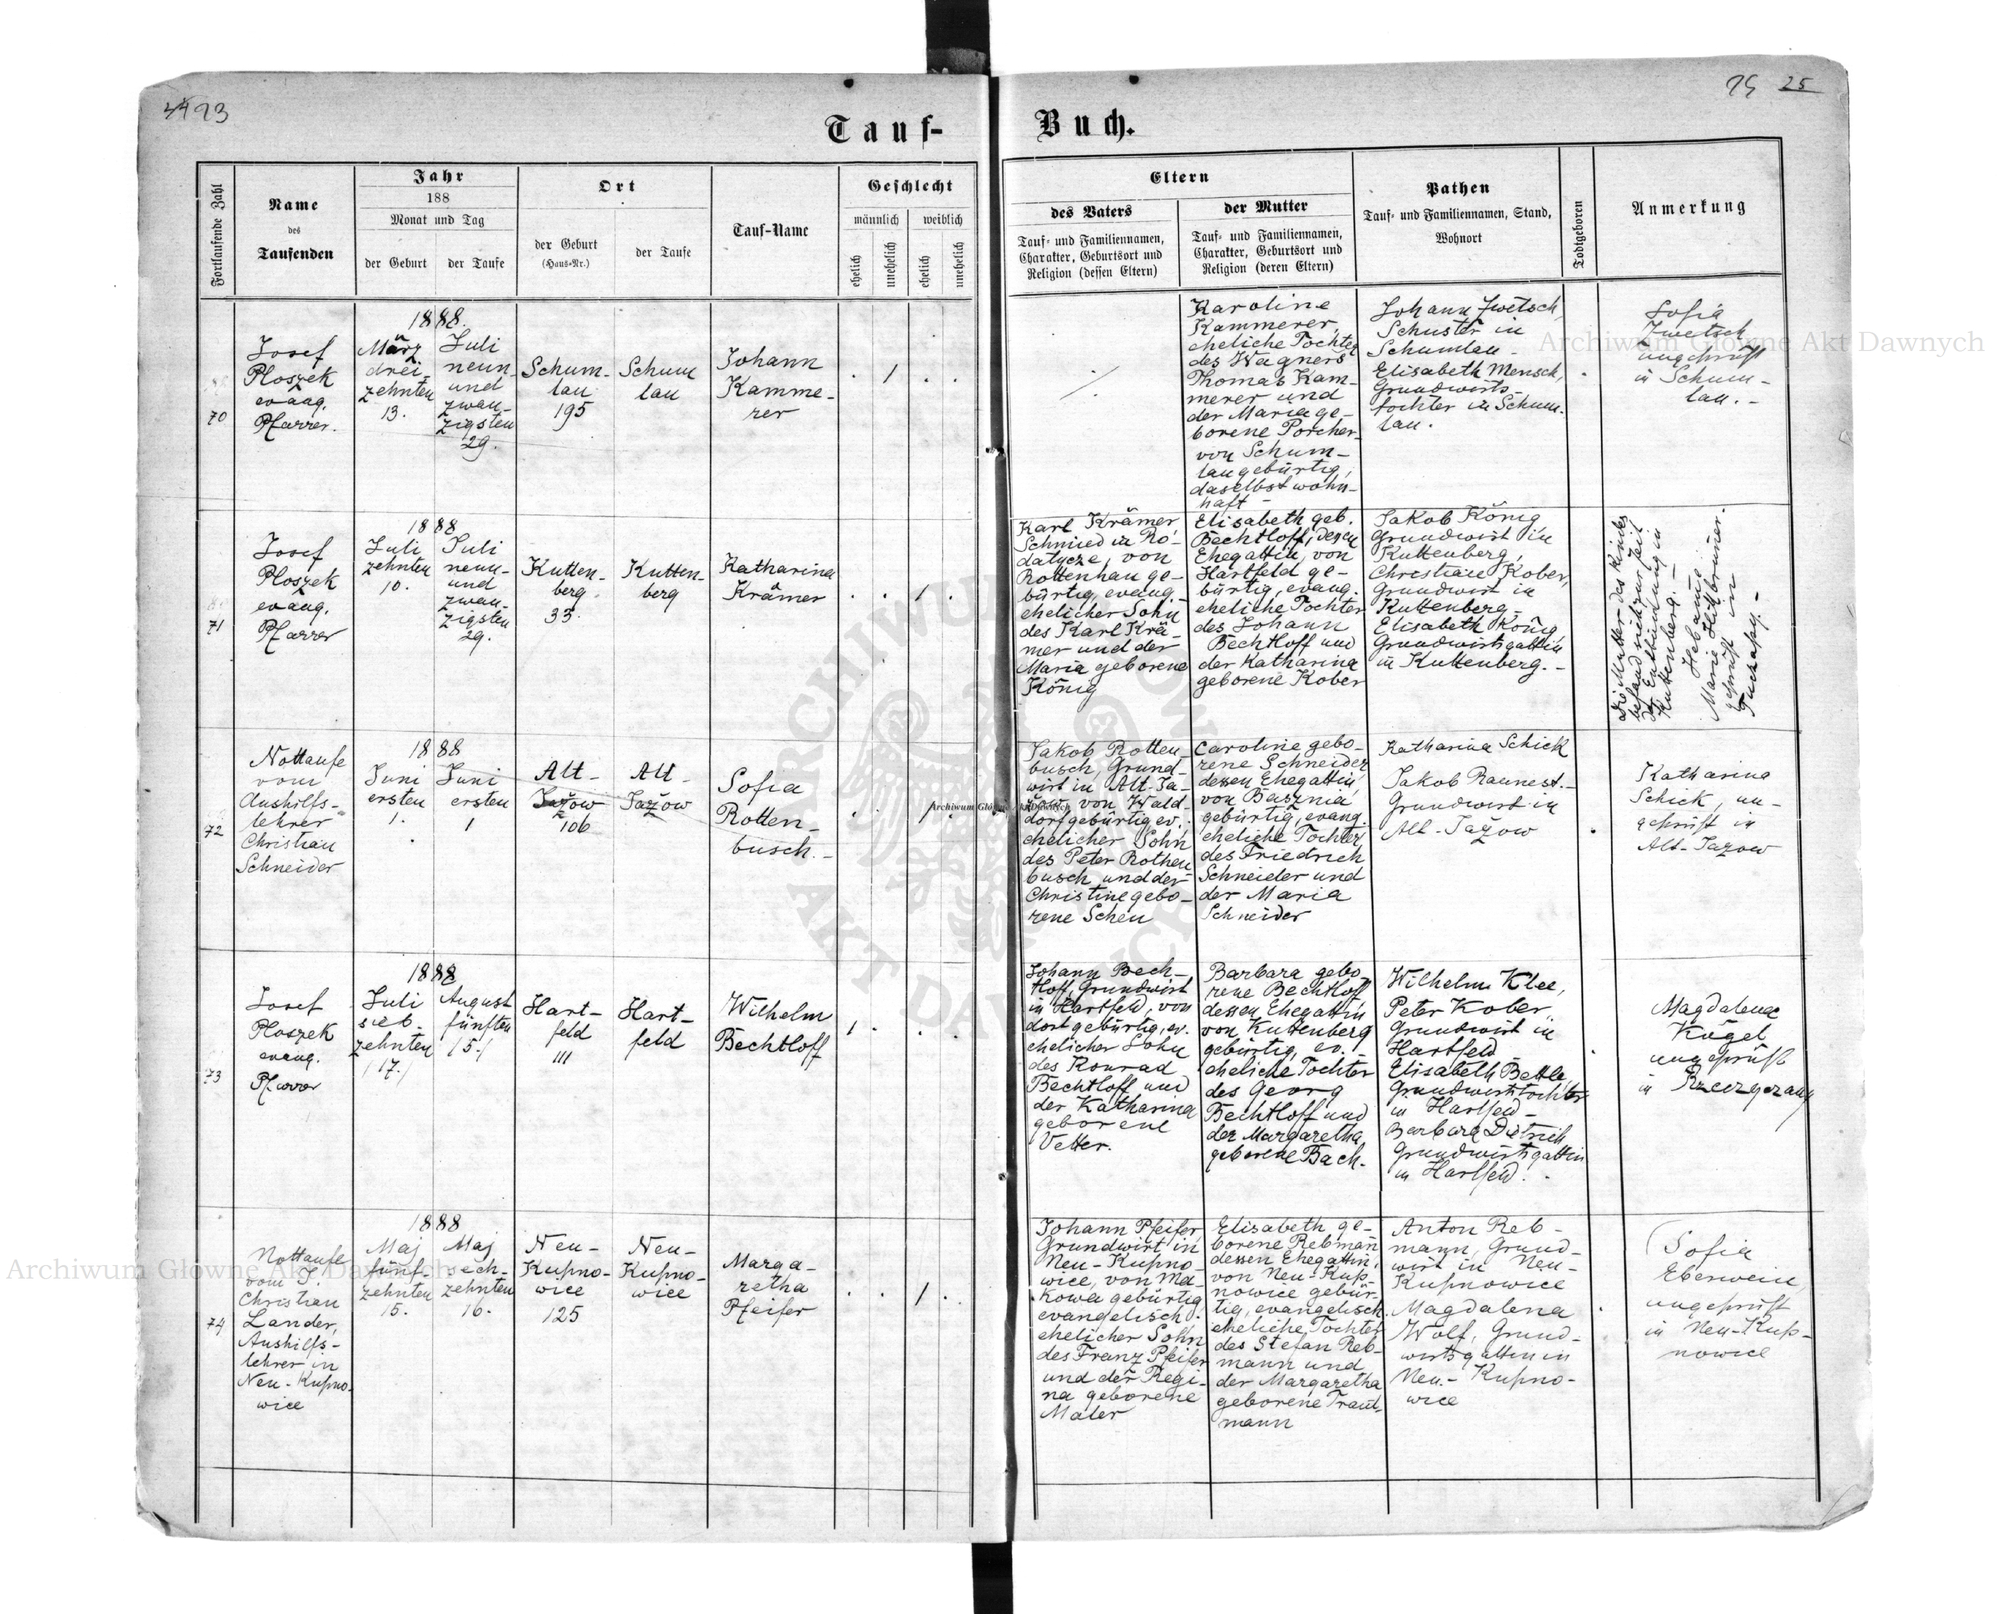 3493
25
Tauf-
Buch.
Fortlaufende Zahl
Name
des
Taufenden
Jahr
188
Monat und Tag
der Geburt
der Taufe
Ort
der Geburt
(Haus-Nr.)
der Taufe
Tauf-Name
Geschlecht
männlich
weiblich
ehelich
unehelich
ehelich
unehelich
Eltern
des Vaters
Tauf- und Familiennamen,
Charakter, Geburtsort und
Religion (dessen Eltern)
der Mutter
Tauf- und Familiennamen,
Charakter, Geburtsort und
Religion (deren Eltern)
Pathen
Tauf- und Familiennamen, Stand,
Wohnort
Todtgeboren
Anmerkung
70
Josef
Ploszek
evang.
Pfarrer.
1888.
März
drei-
zehnten
13.
Juli
neun-
und
zwan-
zigsten
29.
Schum-
lau
195
Schum
lau
Johann
Kamme-
rer
1
Karoline
Kammerer,
eheliche Tochter
des Wagners
Thomas Kam-
merer und
der Maria ge-
borene Porcher
von Schum-
lau gebürtig,
daselbst wohn-
haft-
Johann Zwetsch,
Schuster in
Schumlau-
Elisabeth Mensch,
Grundwirts-
tochter in Schum-
lau.
Sofia
Zwetsch
ungeprüft
in Schum-
lau.-
71
Josef
Ploszek
evang.
Pfarrer
1888
Juli
zehnten
10.
Juli
neun-
und
zwan-
zigsten
29.
Kutten-
berg
33.
Kutten-
berg
Katharina
Krämer
1
Karl Krämer
Schmied in Ro-
datycze, von
Rottenhan ge-
bürtig, evang.
ehelicher Sohn
des Karl Krä-
mer und der
Maria geborene
König
Elisabeth geb.
Bechtloff, dessen
Ehegattin, von
Hartfeld ge-
bürtig, evang.
eheliche Tochter
des Johann
Bechtloff und
der Katharina
geborene Kober
Jakob König
Grundwirt in
Kuttenberg,
Christian Kober,
Grundwirt in
Kuttenberg-
Elisabeth König,
Grundwirtsgattin
in Kuttenberg.-
Die Mutter des Kindes
befand sich zur Zeit
der Entbindung in
Kuttenberg.-
Hebame
Marie Heilbrunner.
geprüft in
72
Nottaufe
vom
Aushilfs-
lehrer
Christian
Schneider
1888
Juni
ersten
1.
Juni
ersten
1
Alt-
Jažow
106
Alt-
Jažow
Sofia
Rotten-
busch.-
1
Jakob Rotten
busch, Grund-
wirt in Alt-Ja-
žow, von Wald-
dorf gebürtig, ev.
ehelicher Sohn
des Peter Rothen
busch und der
Christine gebo-
rene Scheu
Caroline gebo-
rene Schneider
dessen Ehegattin,
von Basznia
gebürtig, evang.
eheliche Tochter
des Friedrich
Schneider und
der Maria
Schneider
Katharina Schick
Jakob Raunest.-
Grundwirt in
Alt-Jažow
Katharina
Schick, un-
geprüft in
Alt-Jazow
73
Josef
Ploszek
evang.
Pfarrer
1888
Juli
sieb-
zehnten
/17./
August
fünften
/5./
Hart-
feld
111
Hart-
feld
Wilhelm
Bechtloff
1
Johann Bech-
tloff, Grundwirt
in Hartfeld, von
dort gebürtig, ev.
ehelicher Sohn
des Konrad
Bechtloff und
der Katharina
geborene
Vetter.
Barbara gebo-
rene Bechtloff
dessen Ehegattin,
von Kuttenberg
gebürtig, ev.-
eheliche Tochter
des Georg
Bechtloff und
der Margaretha,
geborene Bach.
Wilhelm Klee,
Peter Kober,
Grundwirt in
Hartfeld-
Elisabeth Bettle,
Grundwirtstochter
in Hartfeld-
Barbara Dietrich,
Grundwirtsgattin
in Hartfeld.
Magdalena
Kugel
ungeprüft
in
74
Nottaufe
vom J.
Christian
Lander,
Aushilfs-
lehrer in
Neu-Kupno-
wice
1888
Maj
fünf-
zehnten
15.
Maj
sech-
zehnten
16.
Neu-
Kupno-
wice
125
Neu-
Kupno-
wice
Marga-
retha
Pfeifer
1
Johann Pfeifer,
Grundwirt in
Neu-Kupno-
wice, von Ma-
kowa gebürtig
evangelisch.
ehelicher Sohn
des Franz Pfeifer
und der Regi-
na geborene
Maler
Elisabeth ge-
borene Rebmann
dessen Ehegattin,
von Neu-Kup-
nowice gebür-
tig, evangelisch.
eheliche Tochter
des Stefan Reb-
mann und
der Margaretha
geborene Traut-
mann
Anton Reb-
mann, Grund-
wirt in Neu-
Kupnowice
Magdalena
Wolf, Grund-
wirtsgattin in
Neu-Kupno-
wice
Sofia
Eberwein,
ungeprüft
in Neu-Kup-
nowice
Archiwum Główne Akt Dawnych
Archiwum Główne Akt Dawnych
Archiwum Główne Akt Dawnych
ARCHIWUM GŁÓWNE
AKT DAWNYCH